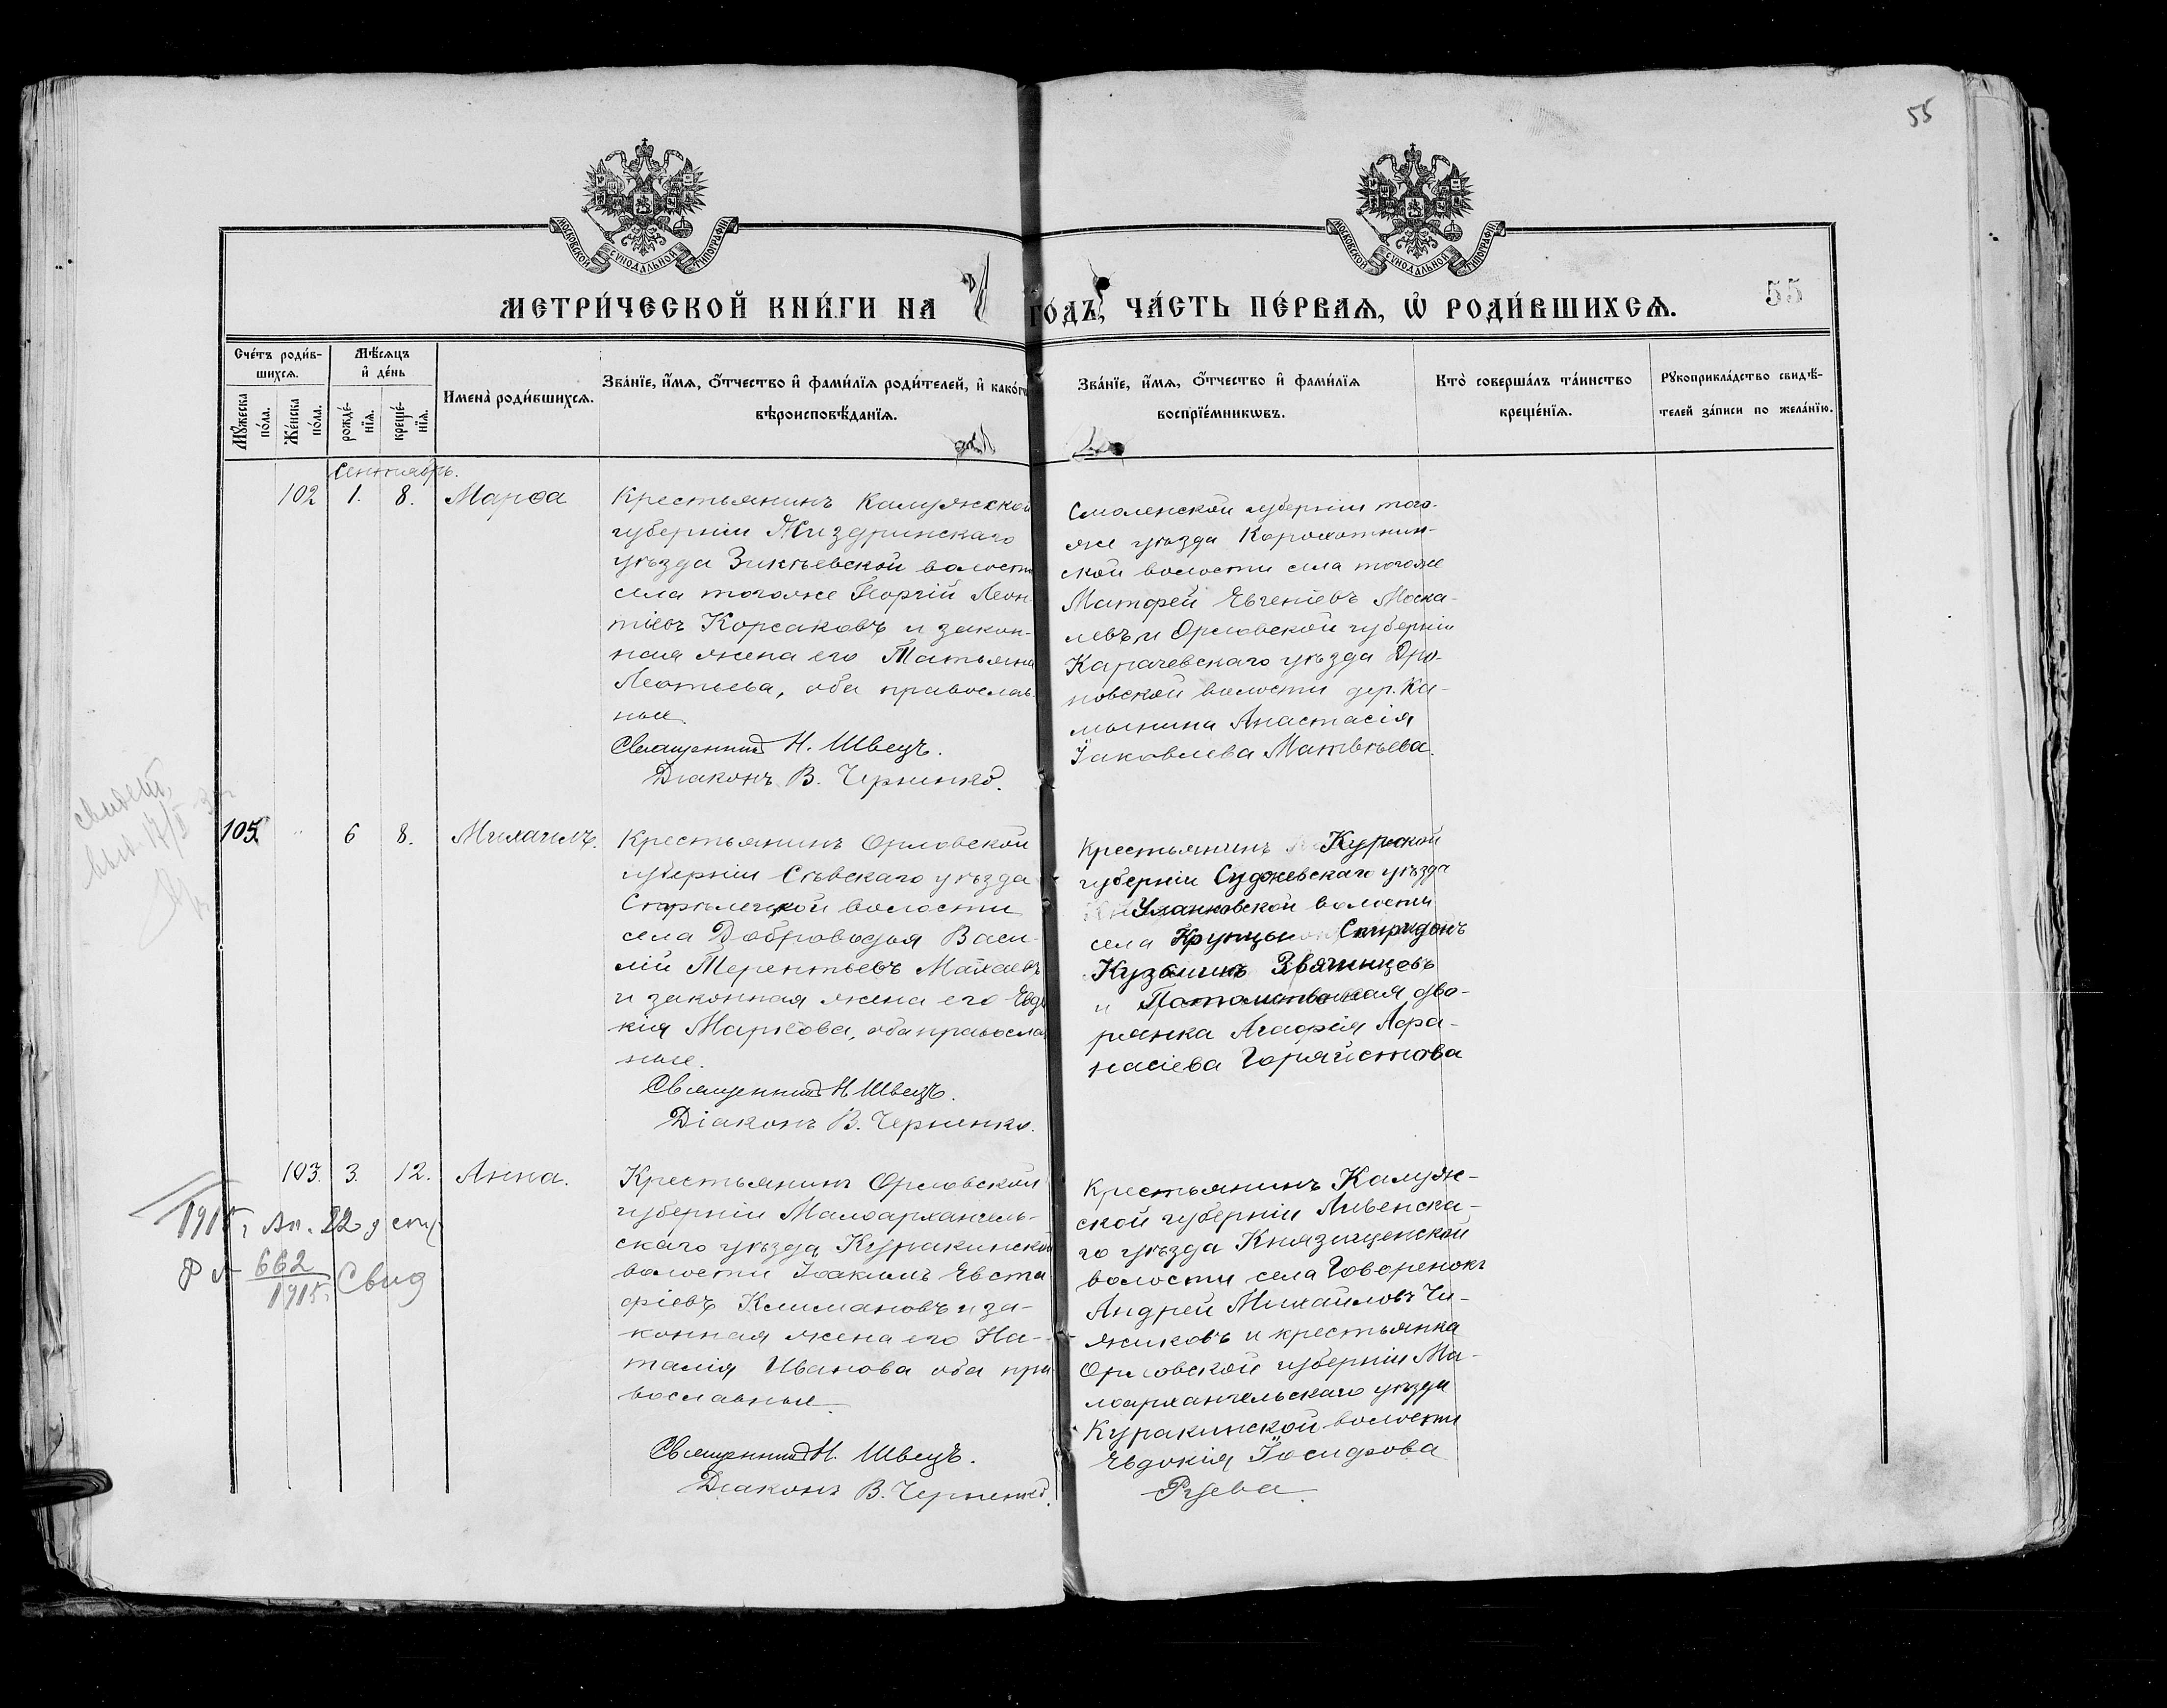 55
МОСКОВСКОЙ СУНОДАЛЬНОЙ ТИПОГРАФІИ
МОСКОВСКОЙ СУНОДАЛЬНОЙ ТИПОГРАФІИ
МЕТРИ́ЧЕСКОЙ КНИ́ГИ НА ГО́ДЪ, ЧА́СТЬ ПЕ́РВАѦ, Ѡ РОДИ́ВШИХСѦ.
55
Сче́тъ роди́в-
шихсѧ.
Мѣ́сѧцъ
и҆ де́нь
Мꙋ́жеска по́ла.
Же́нска по́ла.
рожде́-
нїѧ.
креще́-
нїѧ.
И҆мена̀ роди́вшихсѧ.
Зва́нїе, и҆́мѧ, ѻ҆́тчество и҆ фами́лїѧ роди́телей, и҆ како́гѡ
вѣроисповѣ́данїѧ.
Зва́нїе, и҆́мѧ, ѻ҆́тчество и҆ фами́лїѧ
воспрїе́мникѡвъ.
Кто̀ соверша́лъ та́инство
креще́нїѧ.
Рꙋкоприкла́дство свидѣ́-
телей за́писи по жела́нїю.
Сентябрь.
102 1. 8. Марѳа
Крестьянинъ Калужской
губерніи Жиздринскаго
уѣзда Зикѣевской волости
села тогоже Георгій Леон-
тіевъ Корсаковъ и закон-
ная жена его Татьяна
Леонтьева, оба православ-
ные.
Священникъ Н. Швецъ.
Діаконъ В. Черненко.
Смоленской губерніи того-
же уѣзда Корохоткин-
ской волости села тогоже
Матфей Евгеніевъ Моска-
левъ и Орловской губерніи
Карачевскаго уѣзда Дро-
новской волости дер. Ка-
мынина Анастасія
Іаковлева Матвѣева.
105. 6 8. Михаилъ.
Крестьянинъ Орловской
губерніи Сѣвскаго уѣзда
Стрѣлецкой волости
села Доброводья Васи-
лій Терентьевъ
и законная жена его Евдо
кія Маркова, оба православ
ные.
Священникъ Н Швецъ.
Діаконъ В. Черненко.
Крестьянинъ Курской
губерніи Суджевскаго уѣзда
Уланковской волости
села Крупцы Спиридонъ
Кузьминъ Звягинцевъ
и Потомственная дво-
рянка Агафія Афа-
насіева
103. 3. 12. Анна.
1915, Ап. 22 д
№ 662
1915, Свид
Крестьянинъ Орловской
губерніи Малоархангель-
скаго уѣзда Куракинской
волости Іоакимъ Евста
фіевъ Климановъ и за-
конная жена его На-
талія Иванова оба пра
вославные.
Священникъ Н. Швецъ.
Діаконъ В. Черненко.
Крестьянинъ Калуж-
ской губерніи Ливенска-
го уѣзда Князищенской
волости села Говоренокъ
Андрей Михаиловъ Чи-
жиковъ и крестьянка
Орловской губерніи Ма-
лоархангельскаго уѣзда
Куракинской волости
Евдокія Іосифова